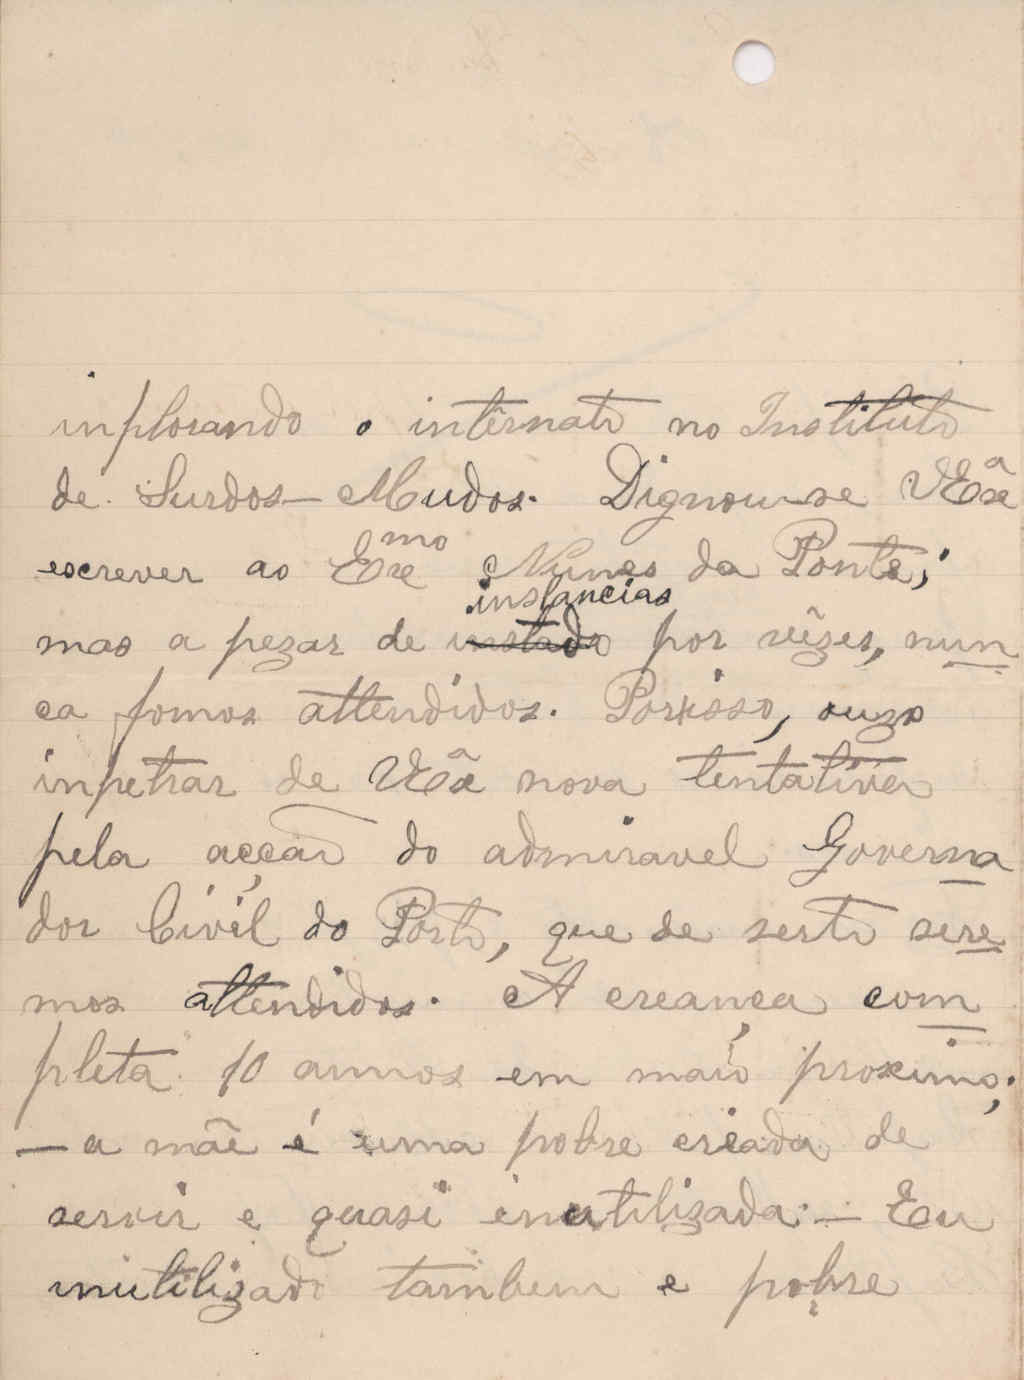 inplorando o intêrnato no Instituto
de Surdos-Mudos. Dignou-se V Exª
escrever ao Exᵐᵒ Nunes da Ponte;
instancias
mas a pezar de instado por vêzes, nun
ca fomos attendidos. Porisso, ouzo
inpetrar de V Exª nova tentativa
pela acção do admiravel Governa
dor Civíl do Porto, que de serto sere
mos attendidos. A creança com
pleta 10 annos em maio proximo;
— a mãe é uma pobre criada de
servir e quasi inutilizada; — Eu
inutilizado tambem e pobre